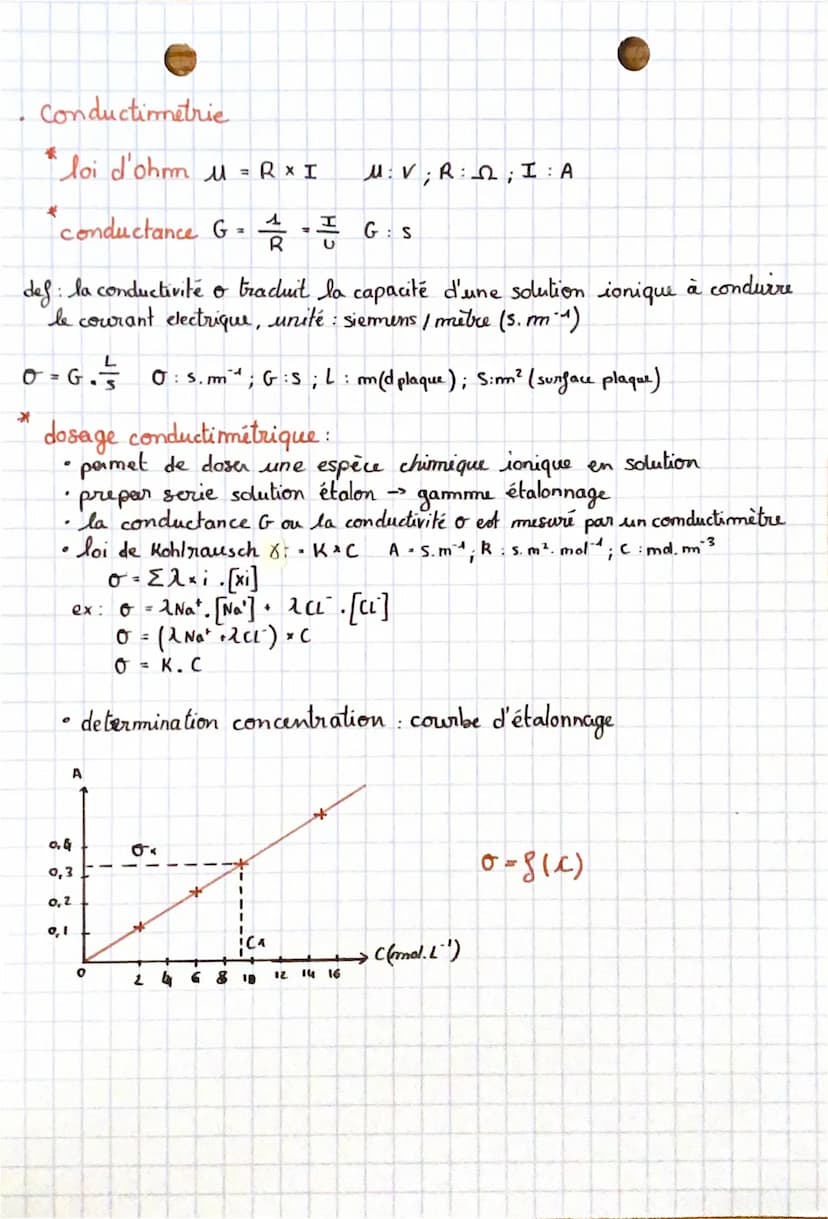 . Conductimétrie
* loi d'ohm u = R × I u : V ; R : Ω ; I : A
* conductance G = 1/R = I/U G : S
def : la conductivité σ traduit la capacité d'une solution ionique à conduire
le courant electrique, unité : siemens / mètre (S. m⁻¹)
σ = G . L/S σ : S. m⁻¹ ; G : S ; L : m (d plaque) ; S : m² (surface plaque)
* dosage conductimétrique :
• permet de doser une espèce chimique ionique en solution
• preparer serie solution étalon → gamme étalonnage
• la conductance G ou la conductivité σ est mesuré par un conductimètre
• loi de Kohlrausch γ : = K × C A = S. m⁻¹ ; R : S. m². mol⁻¹ ; C : mol. m⁻³
σ = Σ λ xi . [xi]
ex : σ = λNa⁺. [Na⁺] + λCl⁻ . [Cl⁻]
σ = (λNa⁺ + λCl⁻) × C
σ = K. C
• determination concentration : courbe d'étalonnage
A
0,4
σ₁
0,3
σ = f(c)
0,2
0,1
C₁
C(mol. L⁻¹)
0 2 4 6 8 10 12 14 16